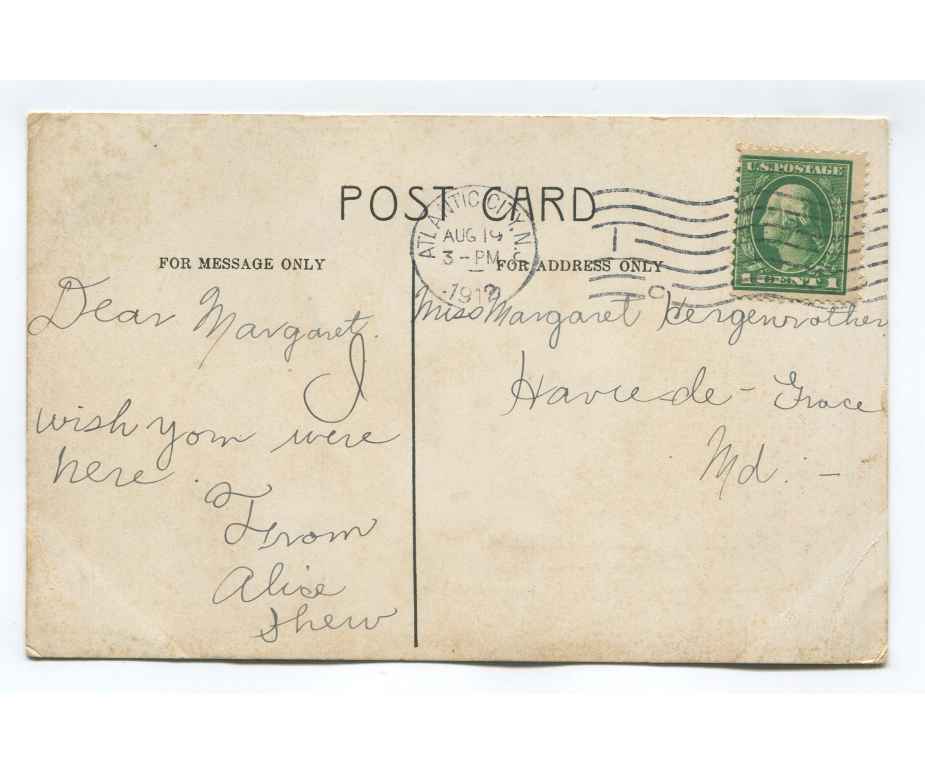 POST CARD
U.S. POSTAGE
1 CENT 1
ATLANTIC CITY, N.J.
AUG 19
3-PM
FOR MESSAGE ONLY
FOR ADDRESS ONLY
Dear Margaret.
I
wish you were
here.
From
Alise
Shew
Miss Margaret Hergenrother
Havre-de-Grace
Md. -